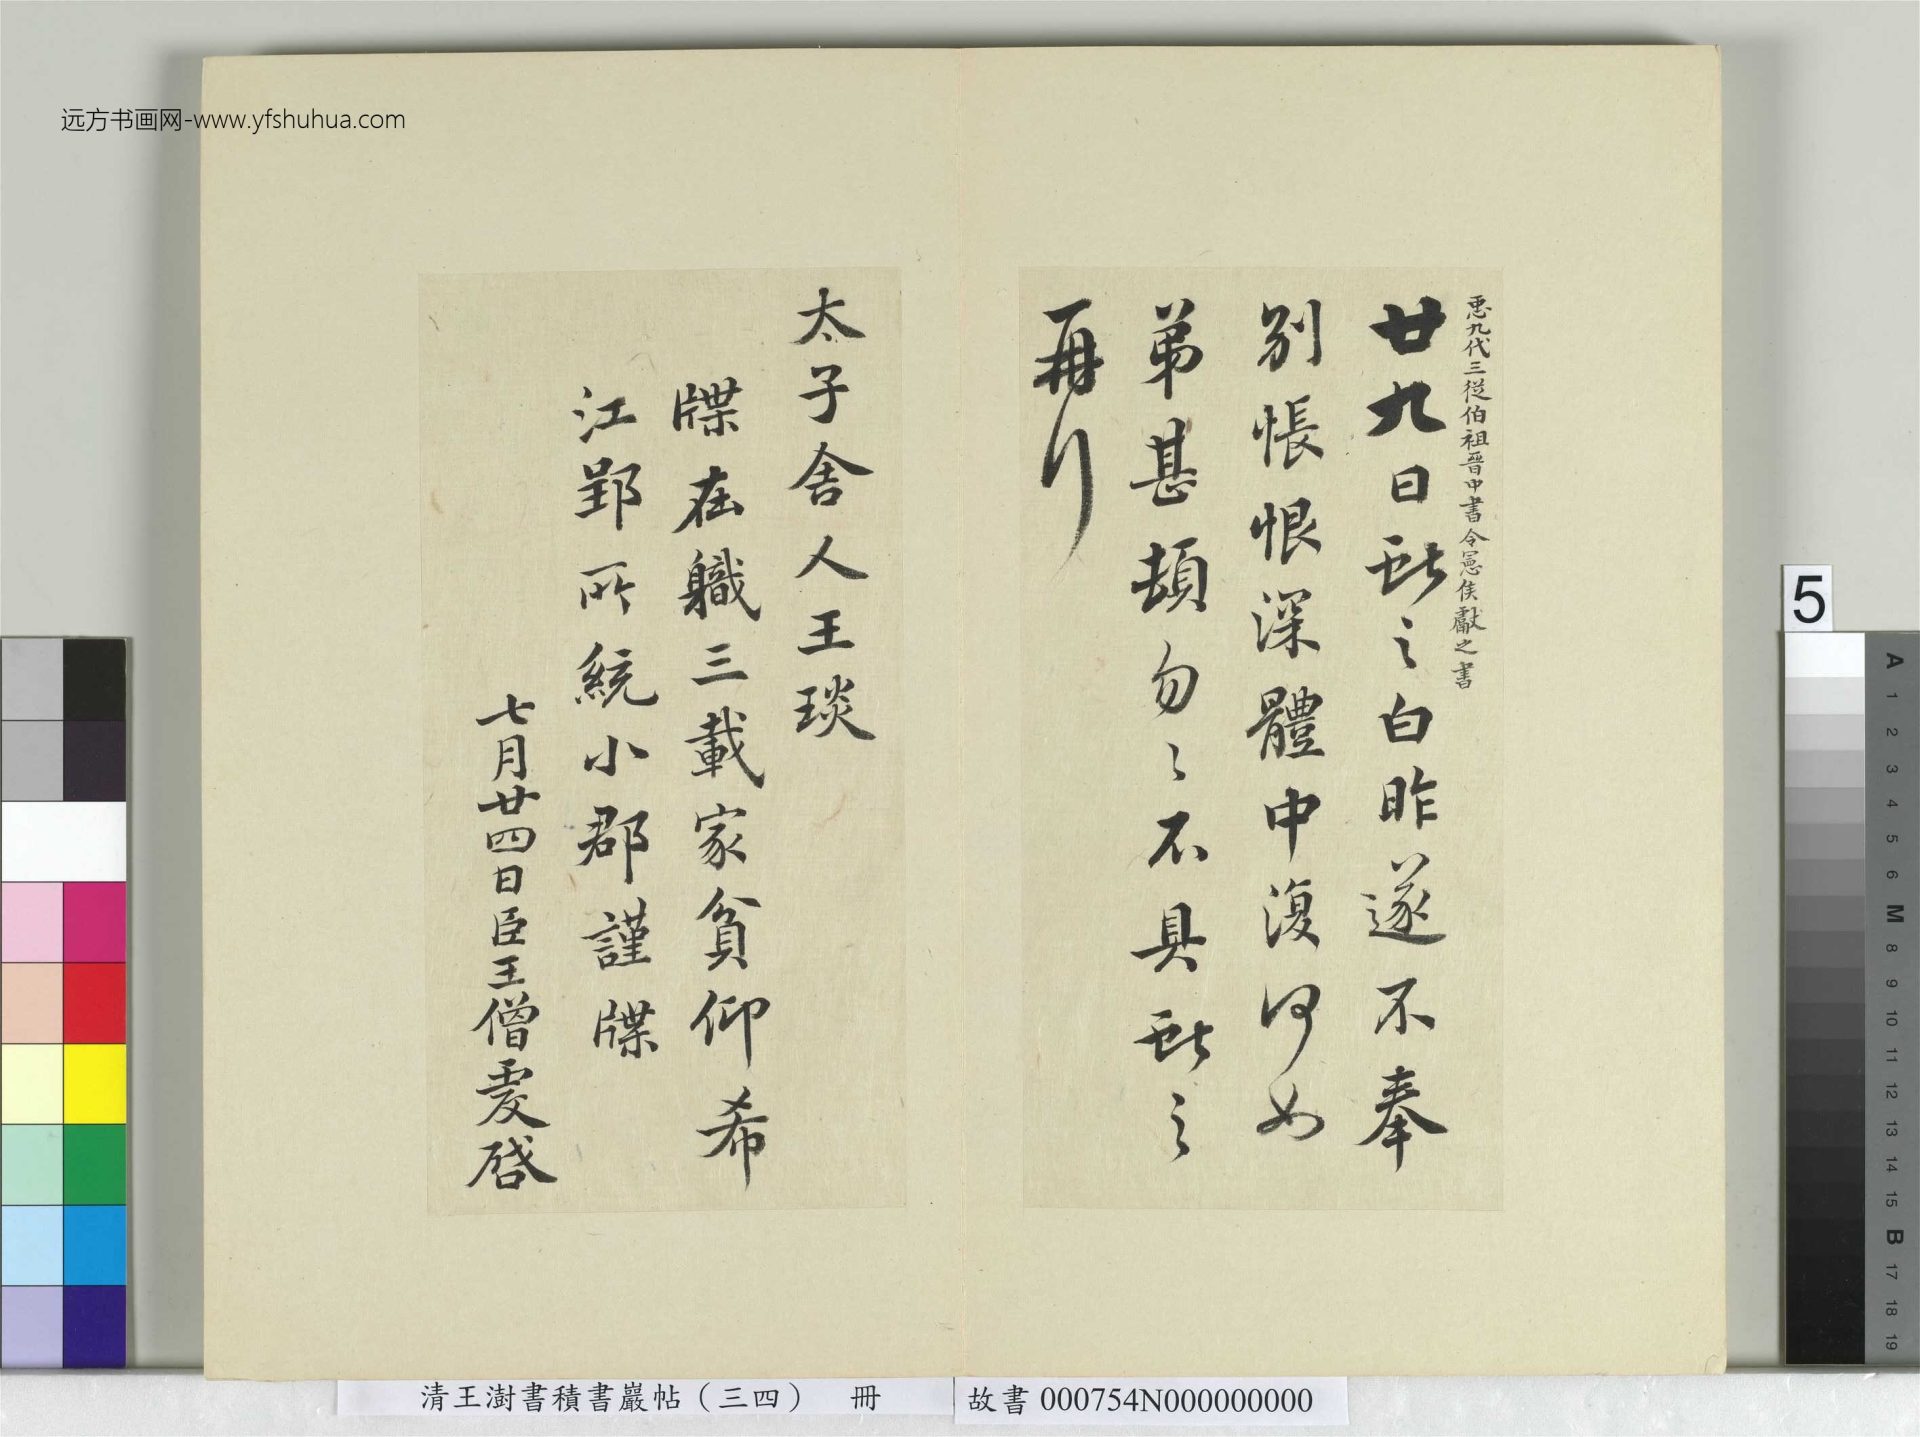 远方书画网-www.yfshuhua.com
臣九代三從伯祖晉中書令憲侯獻之書
廿九日獻之白昨遂不奉
別悵恨深體中復何如
弟甚頓勿〻不具獻之
再拜
太子舍人王琰
牒在職三載家貧仰希
江郢所統小郡謹牒
七月廿四日臣王僧虔啓
5
A 1 2 3 4 5 6 M 8 9 10 11 12 13 14 15 B 17 18 19
清王澍書積書巖帖（三四） 冊
故書 000754N000000000